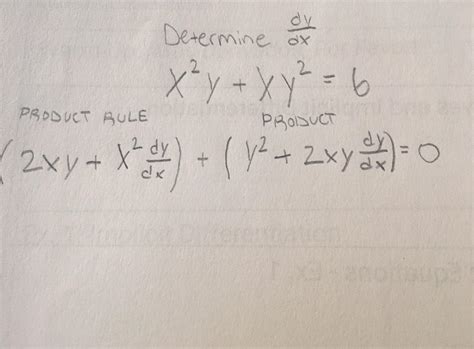 Determine dy/dx
x²y + xy² = 6
PRODUCT RULE PRODUCT
(2xy + x² dy/dx) + (y² + 2xy dy/dx) = 0